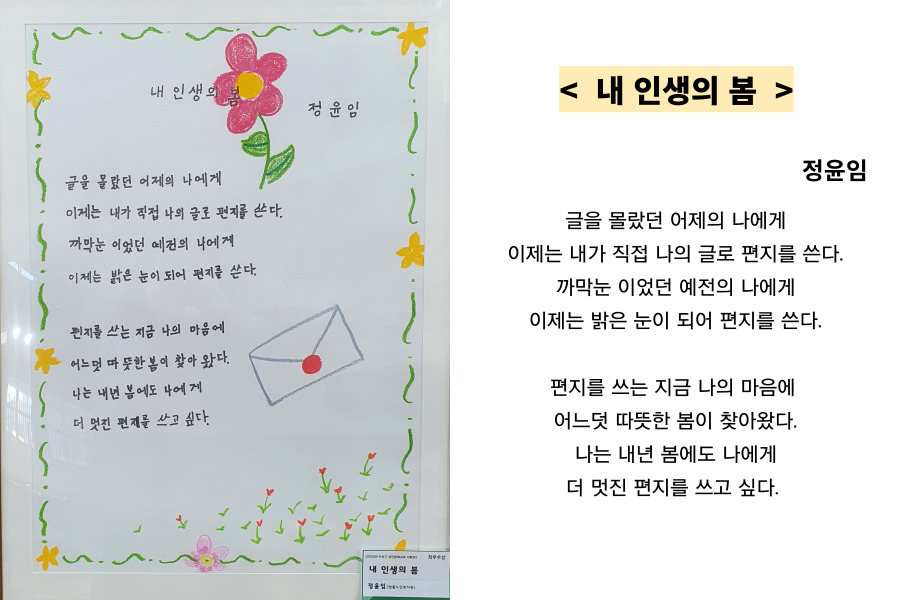 내 인생의 봄
정윤임
글을 몰랐던 어제의 나에게
이제는 내가 직접 나의 글로 편지를 쓴다.
까막눈 이었던 예전의 나에게
이제는 밝은 눈이 되어 편지를 쓴다.
편지를 쓰는 지금 나의 마음에
어느덧 따뜻한 봄이 찾아 왔다.
나는 내년 봄에도 나에게
더 멋진 편제를 쓰고 싶다.
최우수상
내 인생의 봄
정윤임
< 내 인생의 봄 >
정윤임
글을 몰랐던 어제의 나에게
이제는 내가 직접 나의 글로 편지를 쓴다.
까막눈 이었던 예전의 나에게
이제는 밝은 눈이 되어 편지를 쓴다.
편지를 쓰는 지금 나의 마음에
어느덧 따뜻한 봄이 찾아왔다.
나는 내년 봄에도 나에게
더 멋진 편지를 쓰고 싶다.